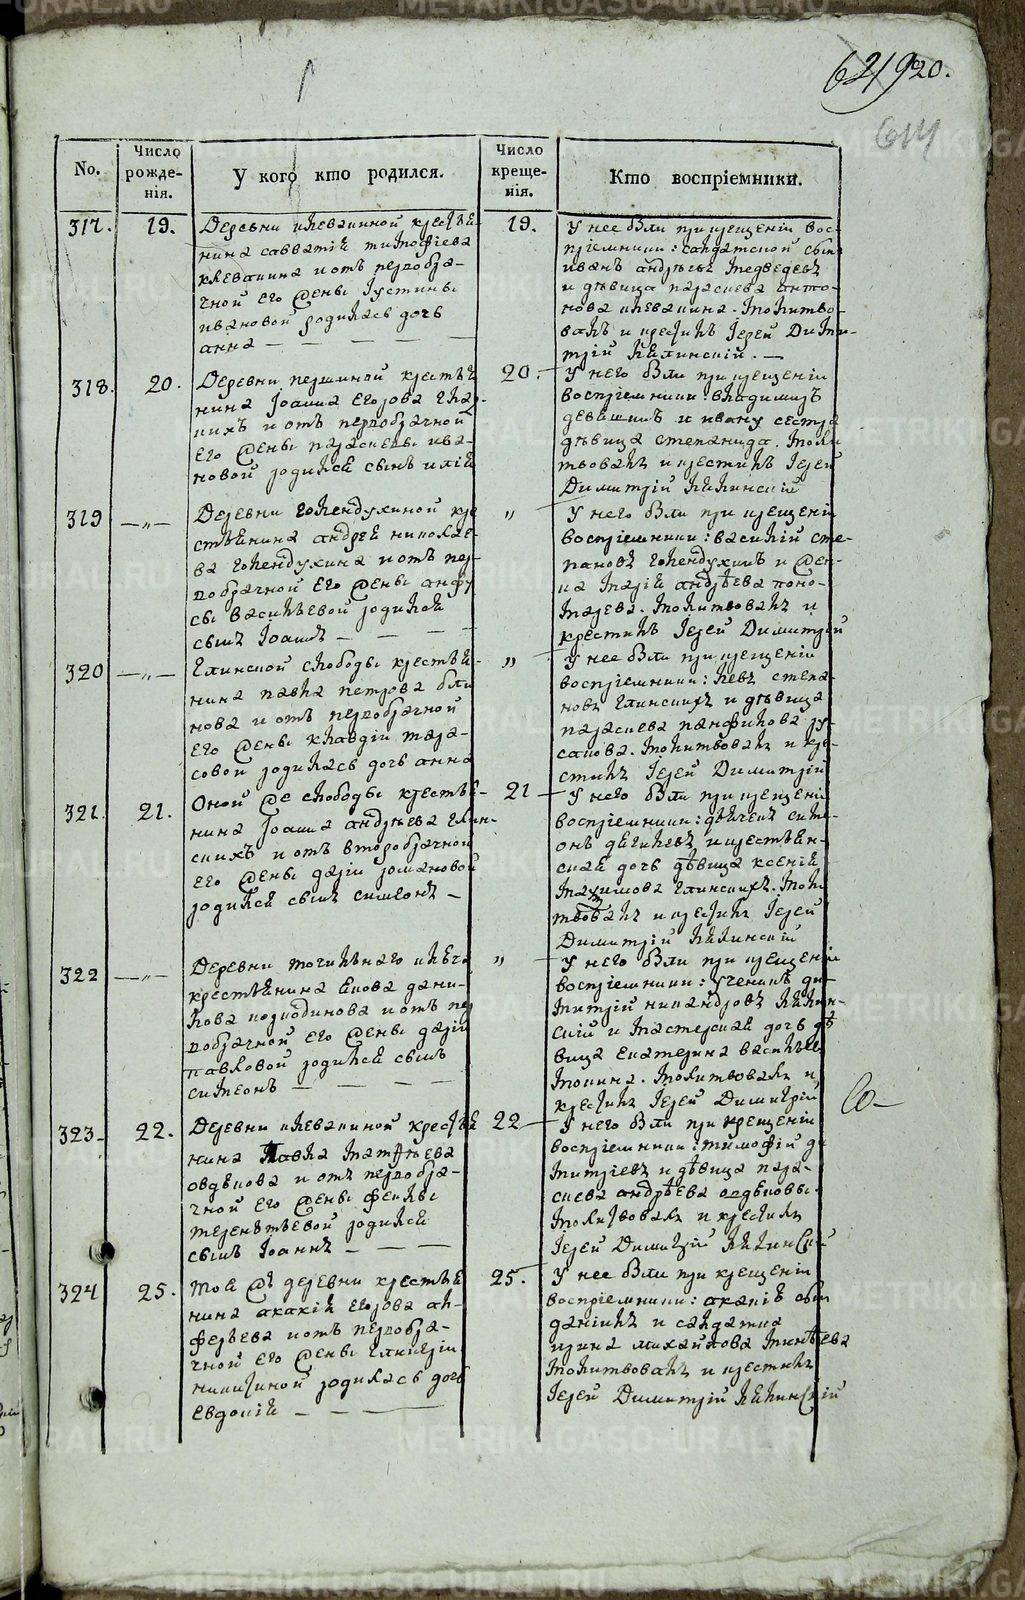 621 920.
614
No.
Число рожде-нія.
У кого кто родился.
Число креще-нія.
Кто воспріемники.
317.
19.
Деревни клевакиной крестья-
нина савватія тимофѣева
клевакина и отъ первобра-
чной его жены Іустины
ивановой родилась дочь
анна
19.
У нее были при крещеніи вос-
пріемники: салдатской сынъ
иванъ андрѣевъ медведевъ
и дѣвица параскева анто-
нова клевакина. молитво-
валъ и крестилъ Іерей Дими-
трій
318.
20.
Деревни першиной крестья
нина Іоанна Егорова
и отъ первобрачной
Его жены параскевы ива-
новой родился сынъ илія
20.
У него были при крещеніи
воспріемники: владимиръ
и ивану сестра
дѣвица степанида. моли
твовалъ и крестилъ Іерей
Димитрій
319
Деревни голендухиной кре
стьянина андрея николае-
ва голендухина и отъ пер-
вобрачной его жены анфу
сы васильевой родился
сынъ Іоаннъ
У него были при крещеніи
воспріемники: василій сте-
пановъ голендухинъ и жен-
ка марія андрѣева поно-
марева. молитвовалъ и
крестилъ Іерей Димитрій
320
Глинской слободы крестья-
нина павла петрова бли
нова и отъ первобрачной
его жены клавдіи тара-
совой родилась дочь анна
У нее были при крещеніи
воспріемники: левъ степа-
новъ глинскихъ и дѣвица
параскева панфилова ру
сакова. молитвовалъ и кре-
стилъ Іерей Димитрій
321.
21.
Оной же слободы крестья-
нина Іоанна андрѣева глин-
скихъ и отъ второбрачной
его жены даріи романовой
родился сынъ симеонъ
21
У него были при крещеніи
воспріемники: симе-
онъ и крестьян-
ская дочь дѣвица ксенія
максимова глинскихъ. моли
твовалъ и крестилъ Іерей
Димитрій
322
Деревни точильнаго ключа
крестьянина Іакова дани-
лова и отъ пер
вобрачной его жены даріи
павловой родился сынъ
симеонъ
У него были при крещеніи
воспріемники: ученикъ ди-
митрій никандровъ
и мастерская дочь дѣ
вица екатерина васильева
молитвовалъ и
крестилъ Іерей Димитрій
323
22.
Деревни клевакиной крестья
нина Павла матфѣева
овдѣкова и отъ первобра-
чной его жены феклы
терентьевой родился
сынъ Іоаннъ
22
У него были при крещеніи
воспріемники: тимофій ди
митріевъ и дѣвица пара-
скева андрѣева
молитвовалъ и крестилъ
Іерей Димитрій
324
25.
Той жъ деревни крестья
нина акакія егорова ал-
ферьева и отъ первобра-
чной его жены гликеріи
никитиной родилась дочь
Евдокія
25.
У нее были при крещеніи
воспріемники: акакія сынъ
даніилъ и салдатка
ирина михайлова минѣева
молитвовалъ и крестилъ
Іерей Димитрій
METRIKI.GASO-URAL.RU